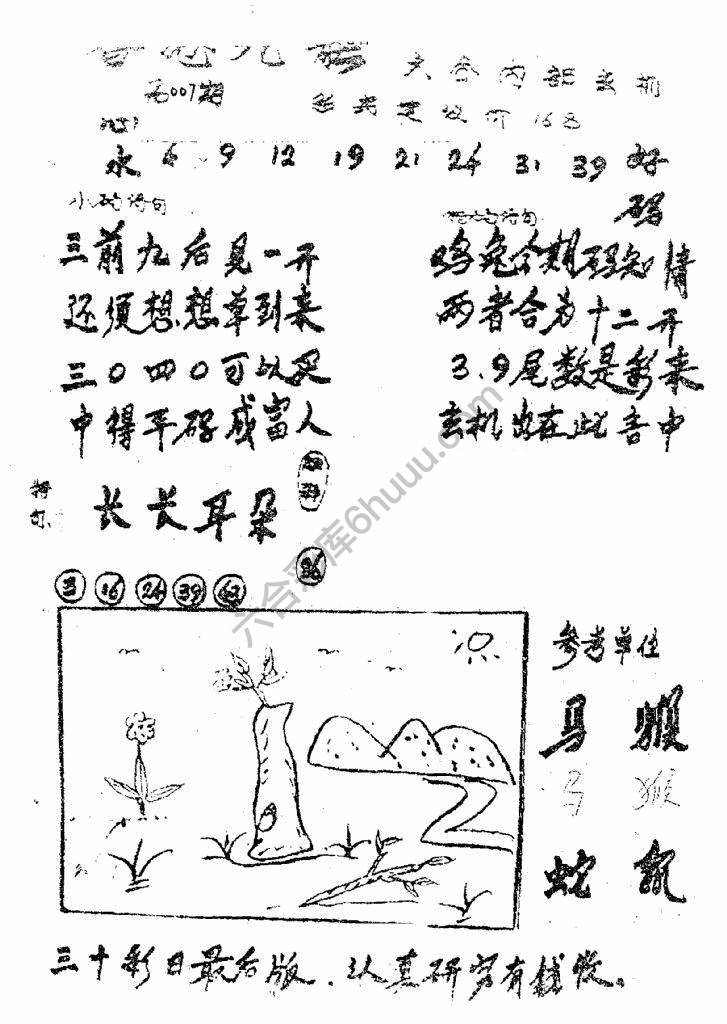 第007期
水 6 9 12 19 21 24 31 39 好码
三前九后見一开
还须想想单到来
三0四0可以买
中得平码成富人
鸡兔今期码知情
两者合为十二开
3.9尾数是彩来
玄机出在此言中
特句
长长耳朵
36
16 24 39
参考单位
马 猴
马 猴
蛇 鼠
三十彩日最后版.认真研究有钱收。
六合彩库6huuu.com